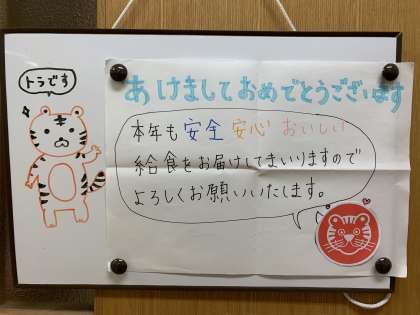 トラです
あけましておめでとうございます
本年も安全安心おいしい
給食をお届けしてまいりますので
よろしくお願いいたします。